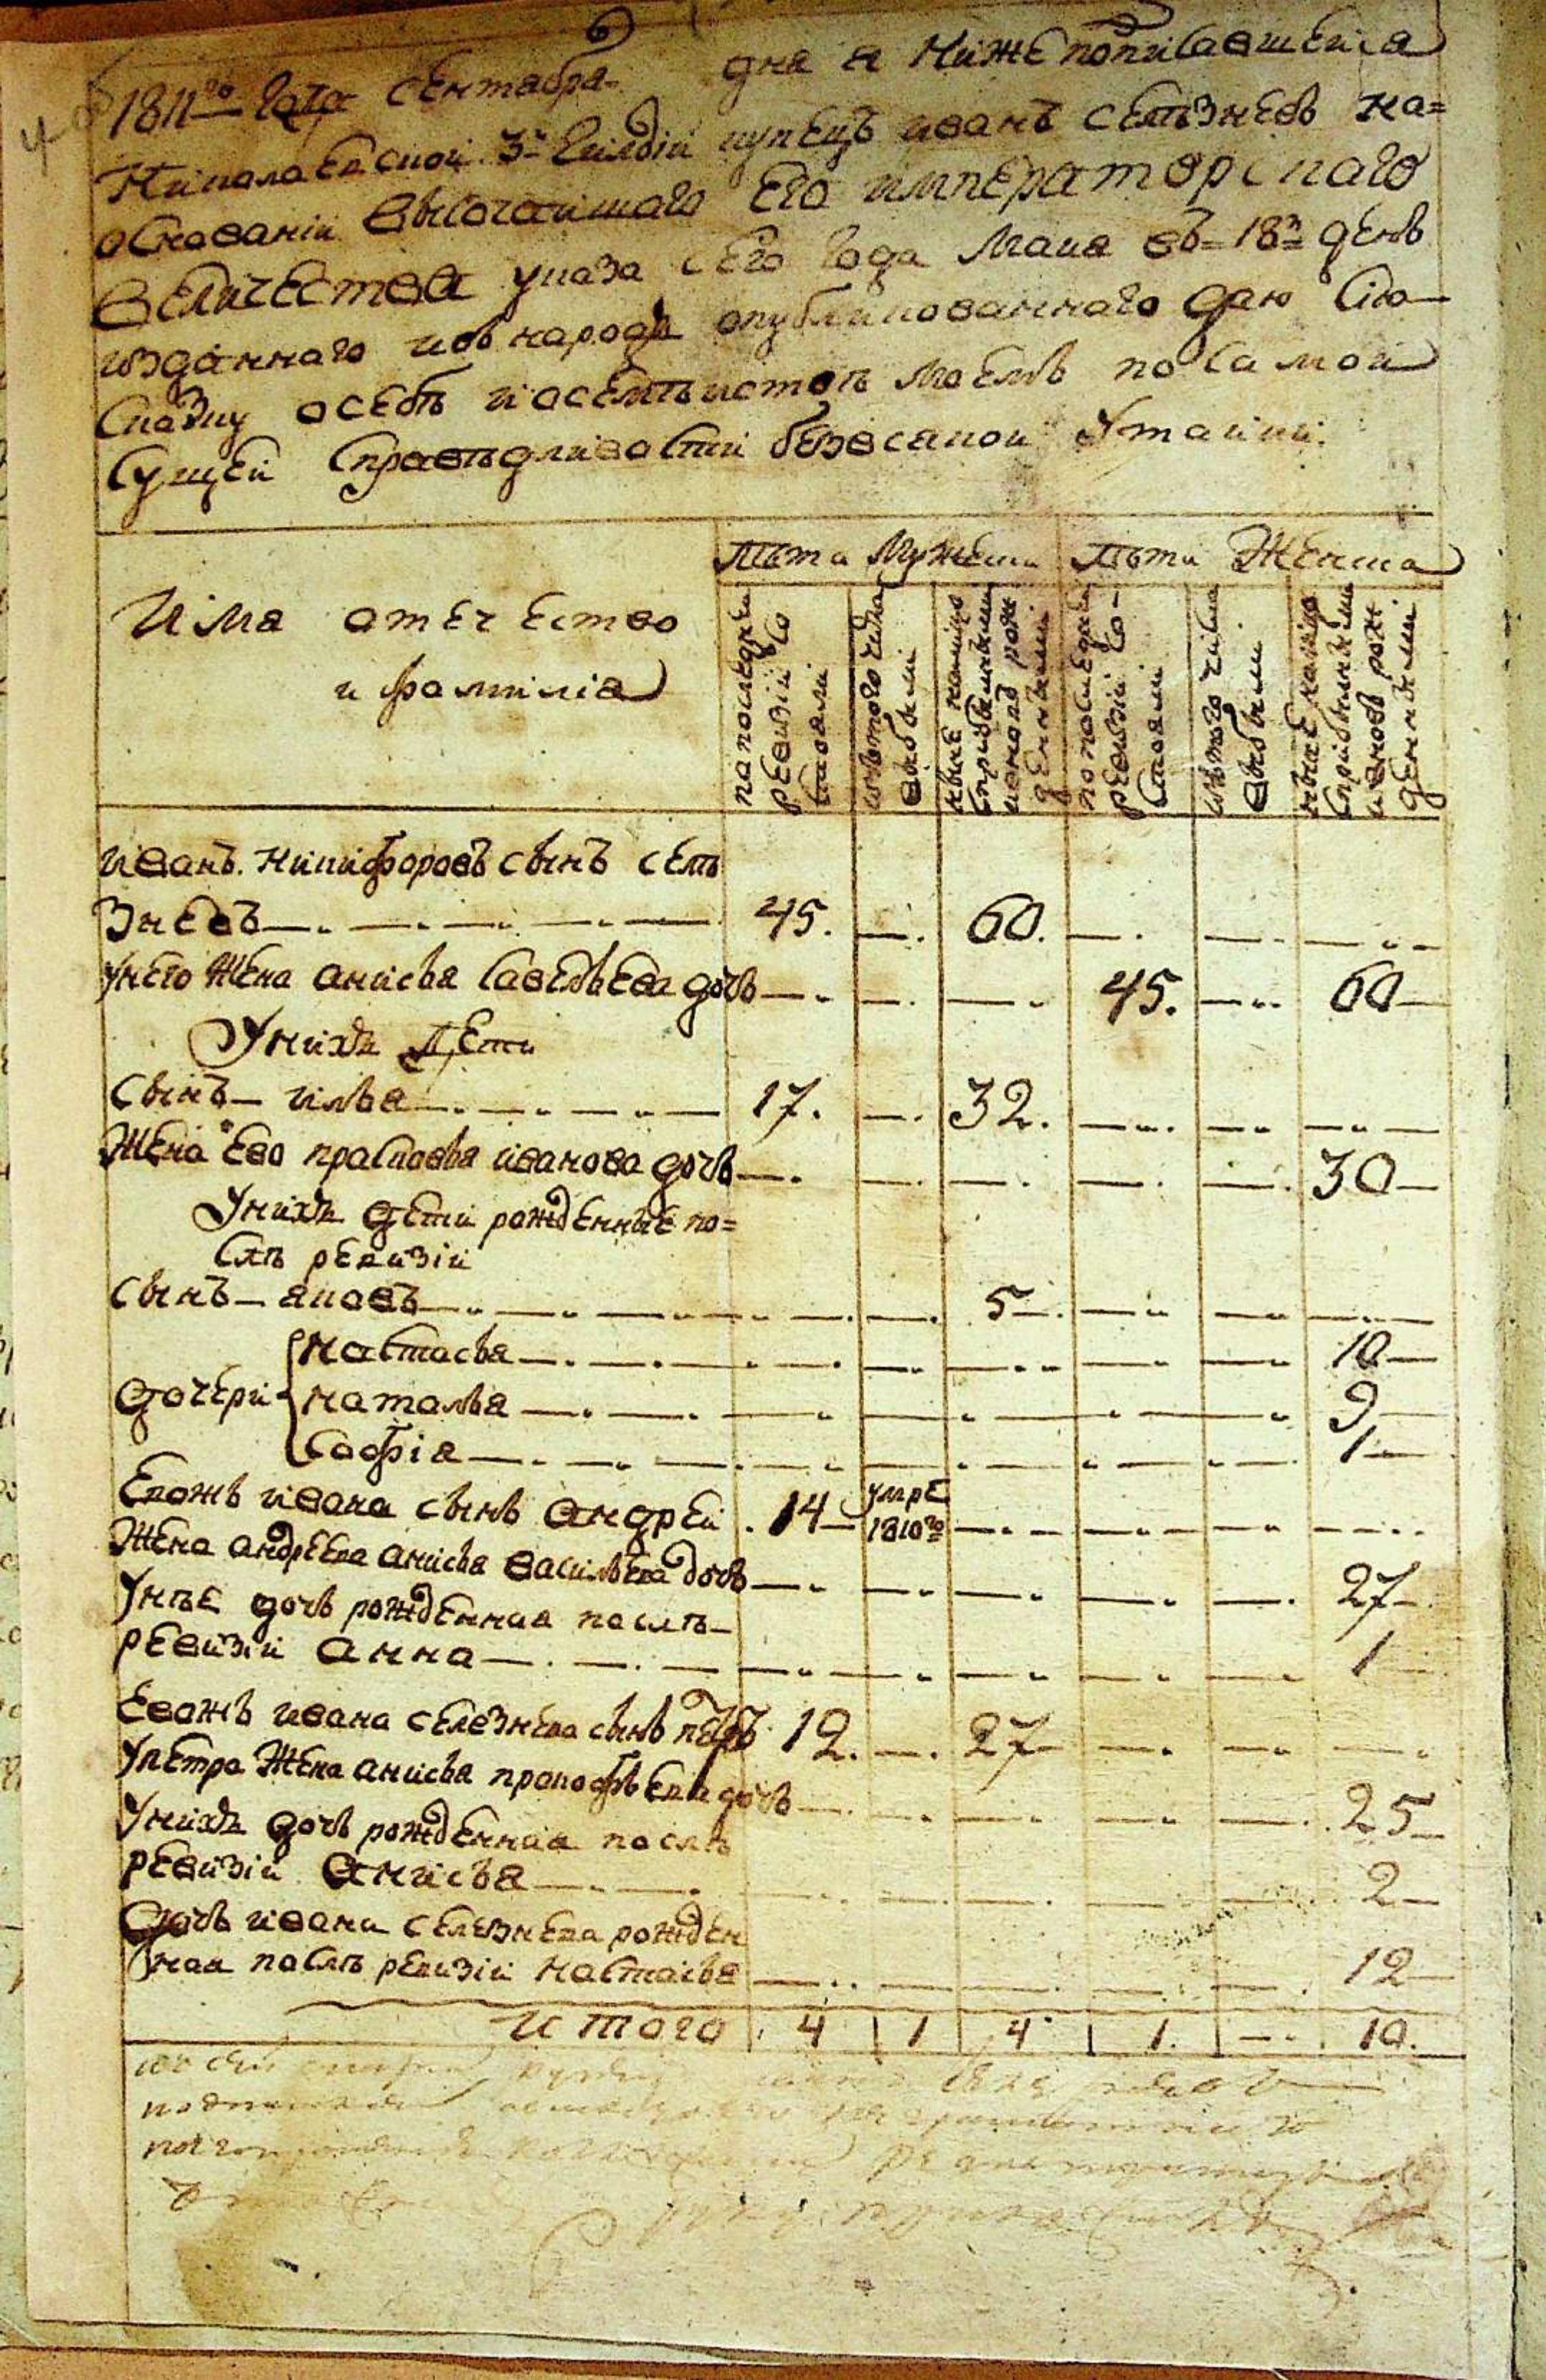 1811го года сентября 6 дня я нижеподписавшейся
Николаевской 3й гилдіи купецъ иванъ селѣзневъ на=
основаніи высочайшаго Его императорскаго
величества указа сего года Маия въ 18й день
изданнаго ивъ народъ опубликованнаго даю сію
сказку осебѣ иосемѣистве моемъ посамой
сущей справѣдливости безвсякой утайки.
Имя отечество
и фамилія
лѣта Мужеска
лѣта Женска
попоследнеи
ревизіи со
стояли
изътого числа
выбыли
ныне налицо
сприбылыми
ивновъ рож
денными
попоследнеи
ревизіи со-
стояли
изътого числа
выбыли
ныне налицо
сприбылыми
ивновь рож.
денными
иванъ. никифоровъ сынъ селѣ
зневъ 45. 60.
унего жена анисья савельева дочь 45. 60
Унихъ дети
сынъ илья 17. 32.
жена ево прасковья иванова дочь 30
Унихъ дети рожденные по=
слѣ ревизіи
сынъ яковъ 5
дочери настасья 10
наталья 9
софія 1
Евожъ ивана сынъ андрей 14 умре 1810го
жена андреева анисья васильева дочь 27
Унѣе дочь рожденная послѣ
ревизіи анна 1
Евожъ ивана селезнева сынъ петръ 12. 27
Упетра жена анисья прокофьева дочь 25
Унихъ дочь рожденная послѣ
ревизіи анисья 2
дочь ивана селезнева рожден
ная послѣ ревизіи настасья 12
итого 4 1 4 1. 10.